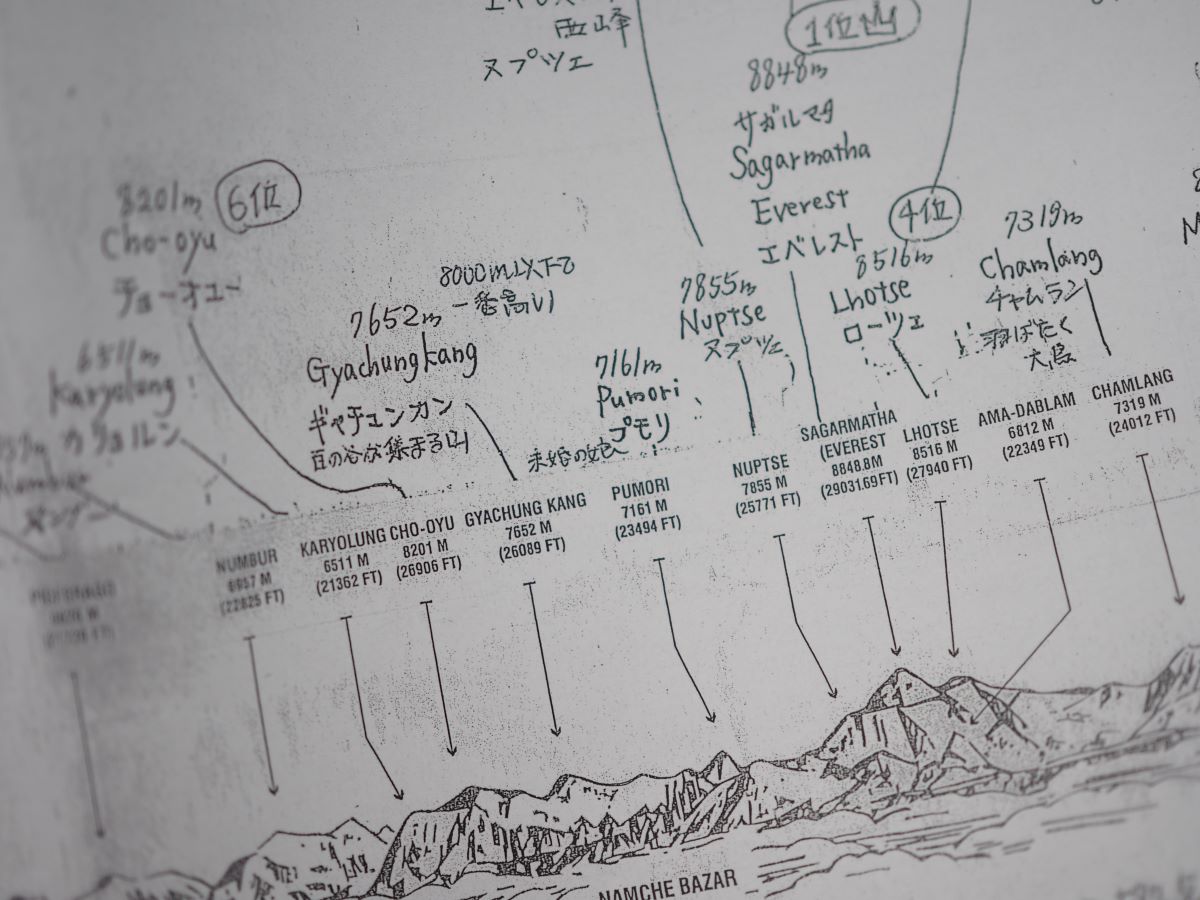 西峰
ヌプツェ
1位
8848m
サガルマタ
Sagarmatha
Everest
エベレスト
8201m
6位
Cho-oyu
チョーオユー
4位
8516m
Lhotse
ローツェ
7319m
Chamlang
チャムラン
羽ばたく
大鳥
8000m以下で
一番高い
7652m
Gyachungkang
ギャチュンカン
百の谷が集まる山
7855m
Nuptse
ヌプツェ
7161m
Pumori
プモリ
未婚の娘
6511m
Karyolung
カリョルン
NUMBUR
6957 M
(22825 FT)
KARYOLUNG
6511 M
(21362 FT)
CHO-OYU
8201 M
(26906 FT)
GYACHUNG KANG
7652 M
(26089 FT)
PUMORI
7161 M
(23494 FT)
NUPTSE
7855 M
(25771 FT)
SAGARMATHA
(EVEREST
8848.8M
(29031.69FT)
LHOTSE
8516 M
(27940 FT)
AMA-DABLAM
6812 M
(22349 FT)
CHAMLANG
7319 M
(24012 FT)
NAMCHE BAZAR